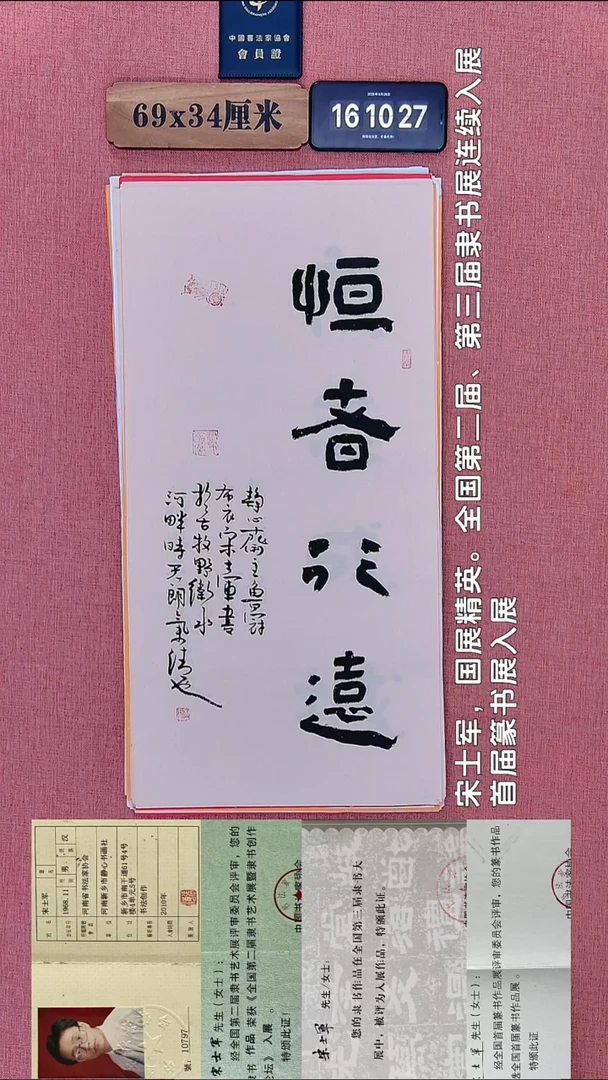 中國書法家協會
會員證
69x34厘米
16 10 27
恒者行遠
靜心齋主魚辭
布衣宋士軍書
於古牧野衛水
河畔時天朗氣清也
宋士军，国展精英。全国第二届、第三届隶书展连续入展
首届篆书展入展
宋士军
1968.11
男
汉
河南省书法家协会
河南新乡市静心书画社
新乡市南干道61号4号
楼4单元5号
书法创作
2010年
號：10797
宋士军 先生（女士）：
经全国第二届隶书艺术展评审委员会评审，您的
隶书 作品 荣获《全国第二届隶书艺术展暨隶书创作
论坛》 入展 。
特颁此证！
宋士军 先生/女士：
您的隶书作品在全国第三届隶书大
展中，被评为入展作品，特颁此证。
士军 先生（女士）：
经全国首届篆书作品展评审委员会评审，您的篆书作品
全国首届篆书作品展。
特颁此证